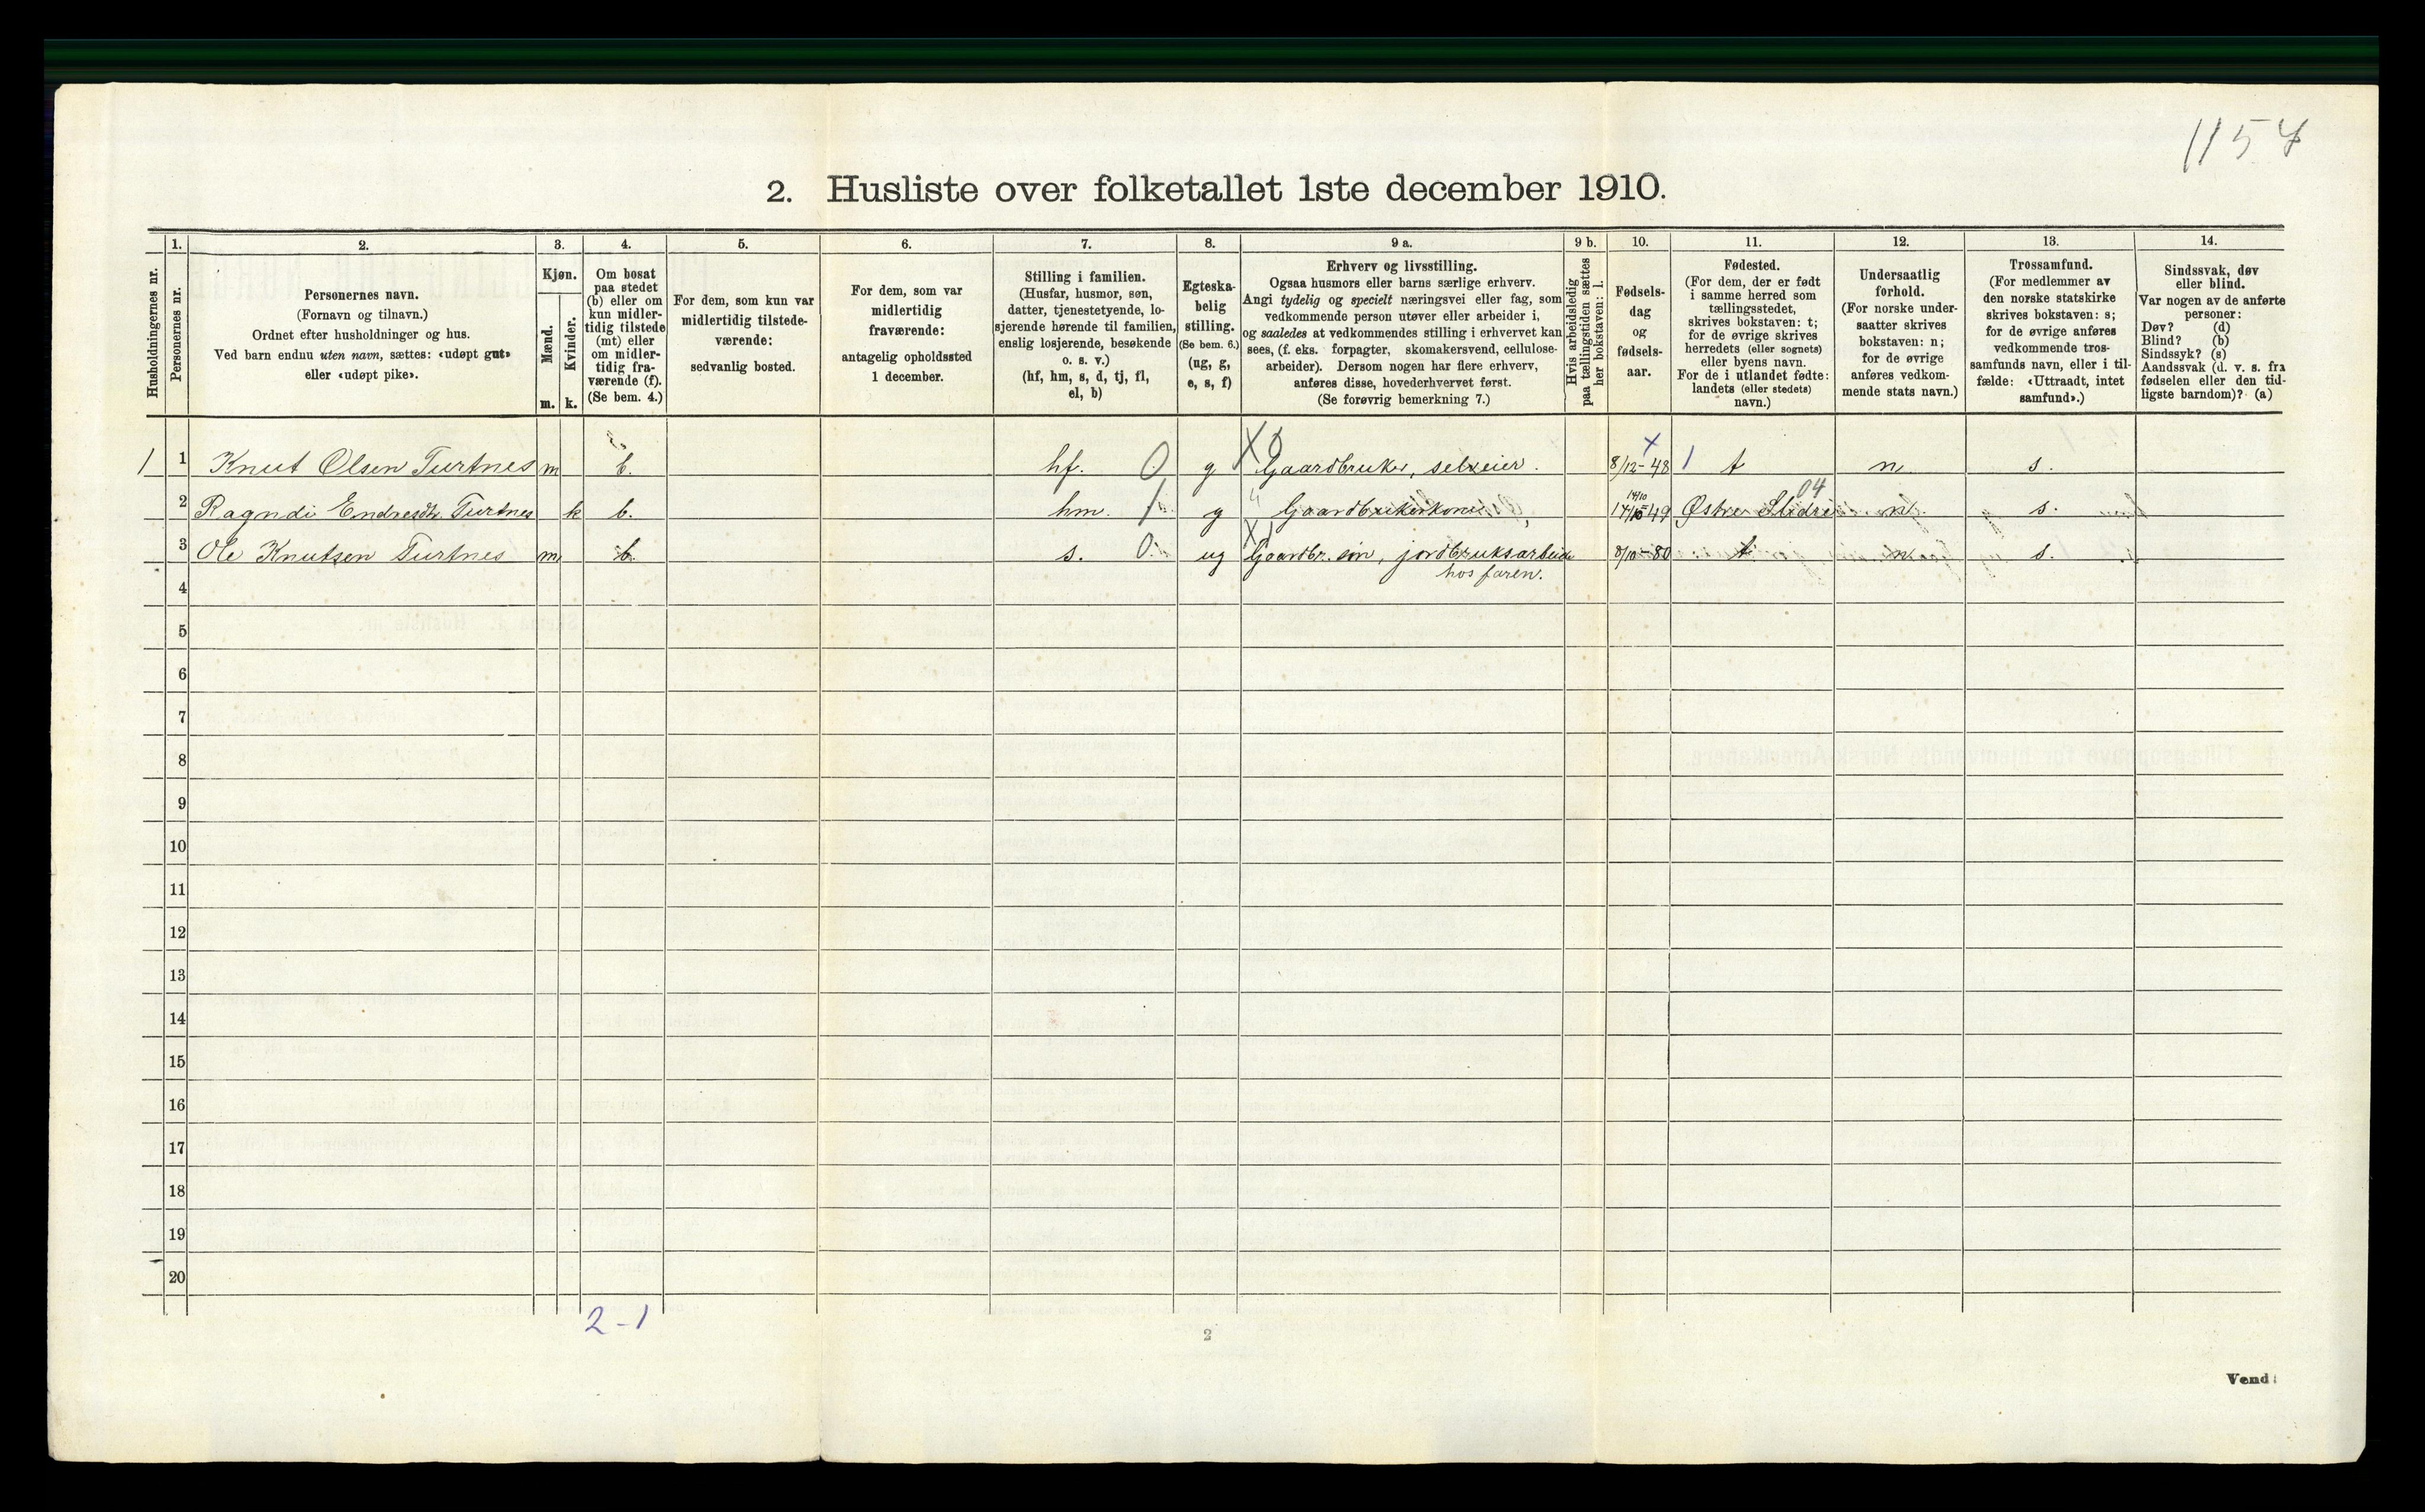 1154
2. Husliste over folketallet 1ste december 1910.
Husholdningernes nr.
1.
Personernes nr.
2.
Personernes navn.
(Fornavn og tilnavn.)
Ordnet efter husholdninger og hus.
Ved barn endnu uten navn, sættes: «udøpt gut»
eller «udøpt pike».
3.
Kjøn.
Mænd.
Kvinder.
m. k.
4.
Om bosat
paa stedet
(b) eller om
kun midler-
tidig tilstede
(mt) eller
om midler-
tidig fra-
værende (f).
(Se bem. 4.)
5.
For dem, som kun var
midlertidig tilstede-
værende:
sedvanlig bosted.
6.
For dem, som var
midlertidig
fraværende:
antagelig opholdssted
1 december.
7.
Stilling i familien.
(Husfar, husmor, søn,
datter, tjenestetyende, lo-
sjerende hørende til familien,
enslig losjerende, besøkende
o. s. v.)
(hf, hm, s, d, tj, fl,
el, b)
8.
Egteska-
belig
stilling.
(Se bem. 6.)
(ug, g,
e, s, f)
9 a.
Erhverv og livsstilling.
Ogsaa husmors eller barns særlige erhverv.
Angi tydelig og specielt næringsvei eller fag, som
vedkommende person utøver eller arbeider i,
og saaledes at vedkommendes stilling i erhvervet kan
sees, (f. eks. forpagter, skomakersvend, cellulose-
arbeider). Dersom nogen har flere erhverv,
anføres disse, hovederhvervet først.
(Se forøvrig bemerkning 7.)
9 b.
Hvis arbeidsledig
paa tællingstiden sættes
her bokstaven: l.
10.
Fødsels-
dag
og
fødsels-
aar.
11.
Fødested.
(For dem, der er født
i samme herred som
tællingsstedet,
skrives bokstaven: t;
for de øvrige skrives
herredets (eller sognets)
eller byens navn.
For de i utlandet fødte:
landets (eller stedets)
navn.)
12.
Undersaatlig
forhold.
(For norske under-
saatter skrives
bokstaven: n;
for de øvrige
anføres vedkom-
mende stats navn.)
13.
Trossamfund.
(For medlemmer av
den norske statskirke
skrives bokstaven: s;
for de øvrige anføres
vedkommende tros-
samfunds navn, eller i til-
fælde: «Uttraadt, intet
samfund».)
14.
Sindssvak, døv
eller blind.
Var nogen av de anførte
personer:
Døv? (d)
Blind? (b)
Sindssyk? (s)
Aandssvak (d. v. s. fra
fødselen eller den tid-
ligste barndom)? (a)
1 1 Knut Olsen Turtnes m b. hf. 0 g X0 Gaardbruker, selveier. 8/12-48 1 t n s.
2 Ragndi Endresdtr. Turtnes k b. hm. 1 g " Gaardbrukerkone 14/10 14/10-49 Østre Slidre 04 n s.
3 Ole Knutsen Turtnes m b. s. 0 ug Gaardbr. søn, jordbruksarbeide 8/10-80 t. n s.
hos faren.
4
5
6
7
8
9
10
11
12
13
14
15
16
17
18
19
20
2-1
2
Vend!